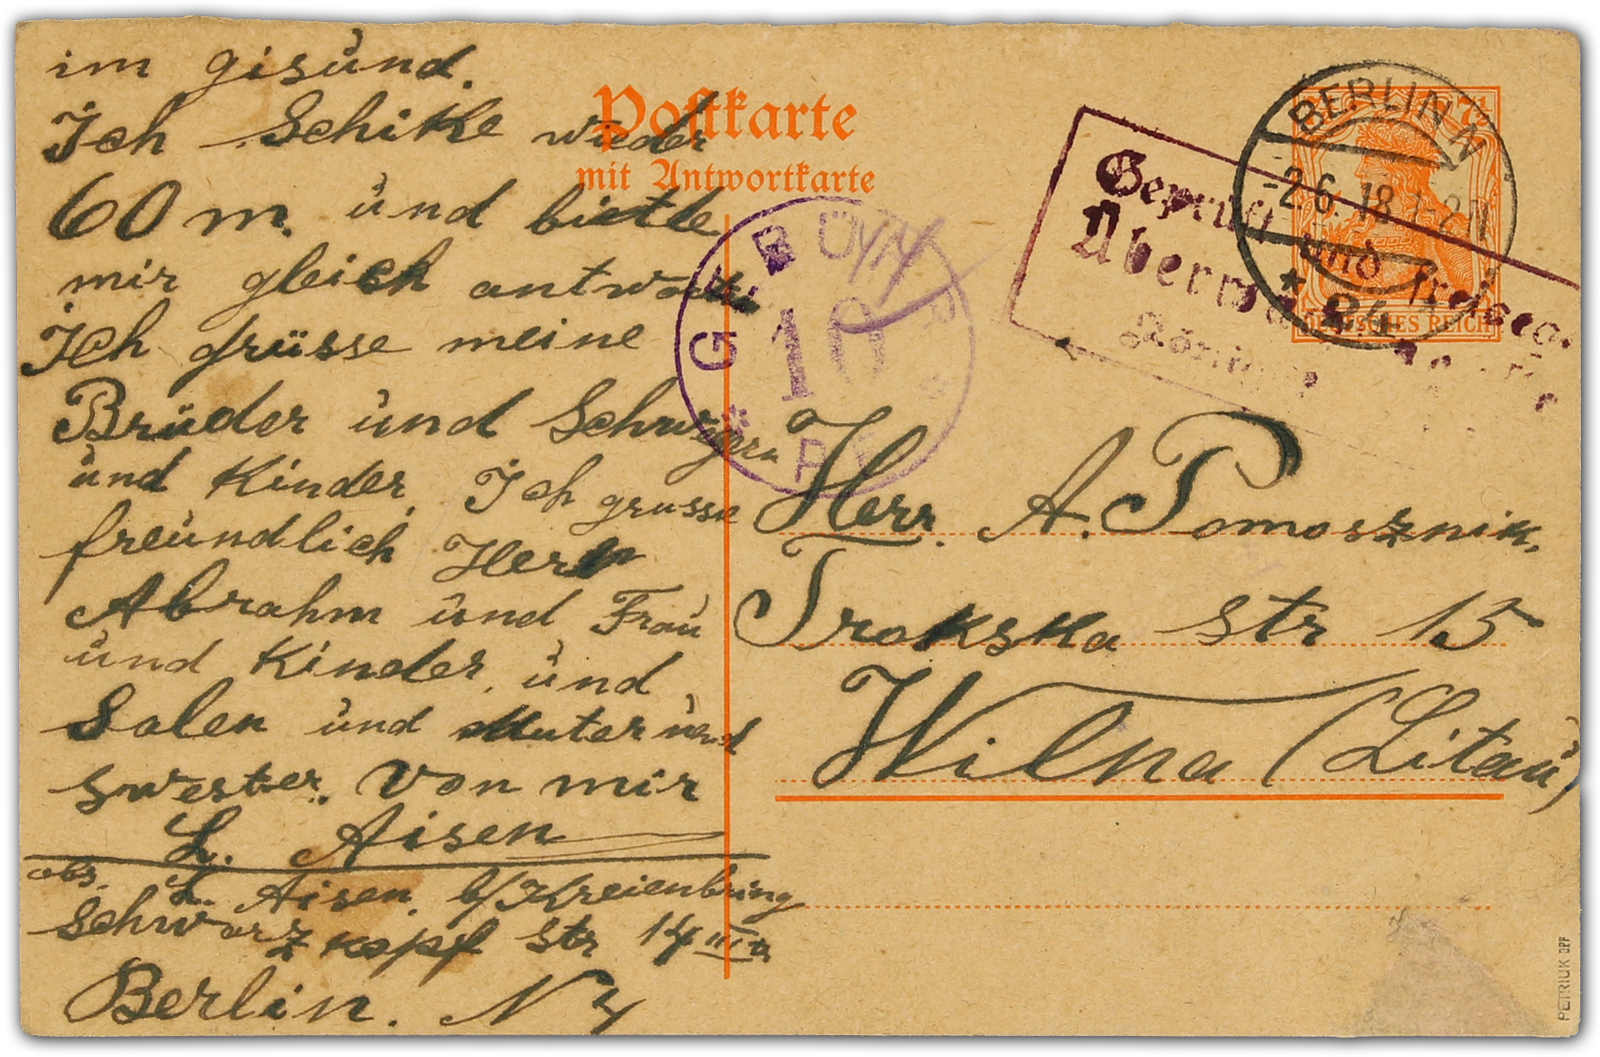 im gisund.
Ich Schike wieder
60 m. und bitte
mir gleich antworten
Ich grüsse meine
Brüder und Schwegern
und Kinder. Ich grusse
freundlich Herr
Abrahm und Frau
und Kinder, und
Salen und Muter und
swester. von mir
L. Aisen
abs. L. Aisen, b/Kreienbring
Schwarzkopf Str 14 IIIa
Berlin. N 4
Postkarte
mit Antwortkarte
GEBÜHR
10
BERLIN N
-2.6.18
* 4
DEUTSCHES REICH
Geprüft und freigeg.
Überwa
Herr. A. Pomosznik.
Trokska Str 15
Wilna (Litau)
PETRIUK BPP